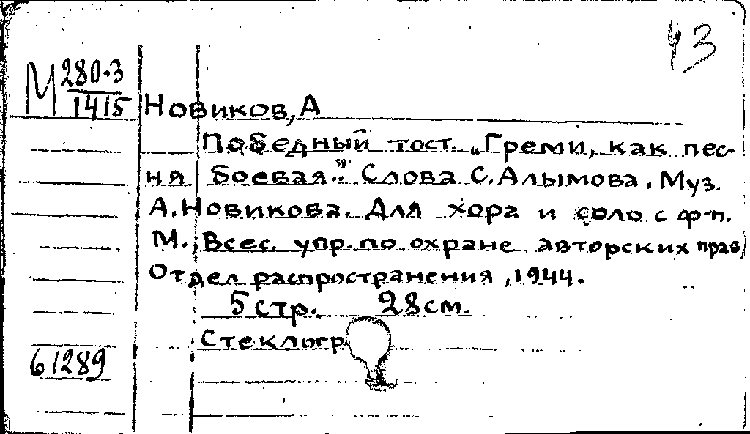 43
М 280-3
1415
Новиков, А
Победный тост. „Греми, как пес-
ня боевая..." Слова С. Алымова. Муз.
А. Новикова. Для хора и соло с ф-п.
М., Всес. упр. по охране авторских прав,
Отдел распространения, 1944.
5 стр. 28 см.
Стеклогр
61289